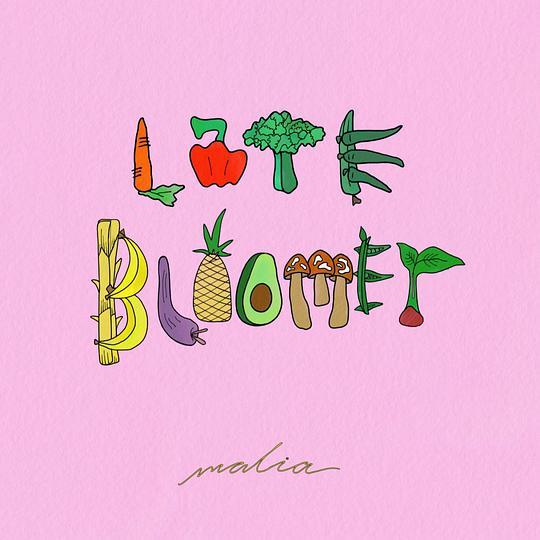 LATE
BLOOMER
malia